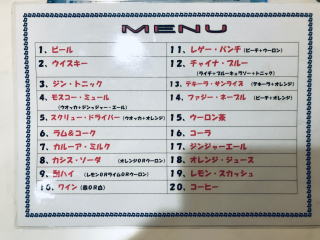 MENU
1、ビール
2、ウイスキー
3、ジン・トニック
4、モスコー・ミュール
(ウオッカ+ジンジャー・エール)
5、スクリュー・ドライバー (ウオッカ+オレンジ)
6、ラム&コーク
7、カルーア・ミルク
8、カシス・ソーダ (オレンジORウーロン)
9、酎ハイ (レモンORライムORウーロン)
10、ワイン (赤OR白)
11、レゲー・パンチ (ピーチ+ウーロン)
12、チャイナ・ブルー
(ライチ+ブルーキュラソー+トニック)
13、テキーラ・サンライズ (テキーラ+オレンジ)
14、ファジー・ネーブル (ピーチ+オレンジ)
15、ウーロン茶
16、コーラ
17、ジンジャーエール
18、オレンジ・ジュース
19、レモン・スカッシュ
20、コーヒー